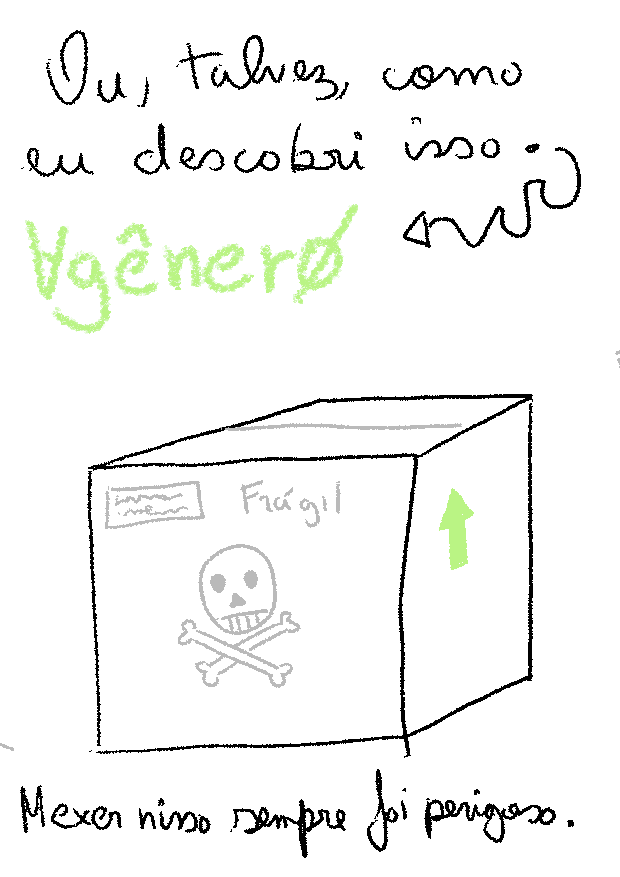 Ou, talvez, como
eu descobri isso.
∀gênerø
Frágil
Mexer nisso sempre foi perigoso.